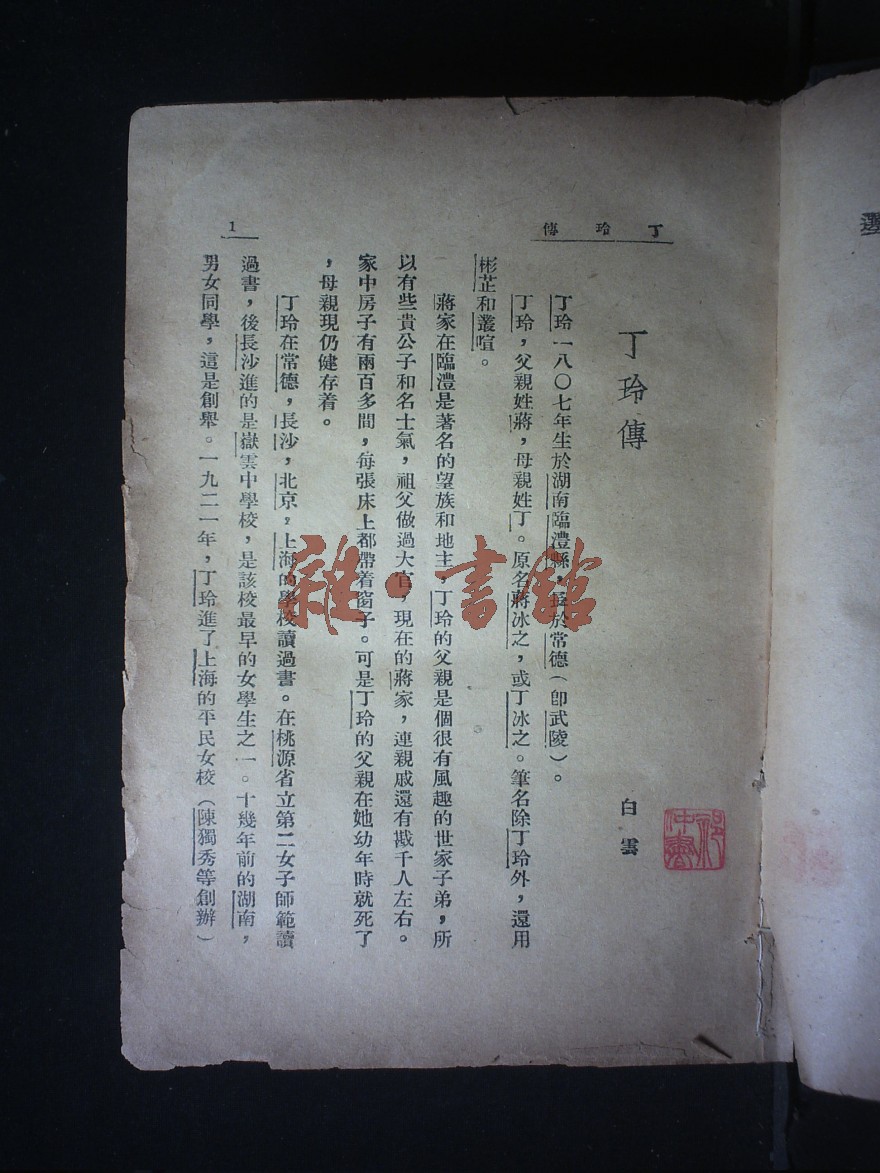 選
丁玲傳
1
丁玲傳
白雲
丁玲一八〇七年生於湖南臨澧縣，長於常德（卽武陵）。
丁玲，父親姓蔣，母親姓丁。原名蔣冰之，或丁冰之。筆名除丁玲外，還用
彬芷和叢喧。
蔣家在臨澧是著名的望族和地主，丁玲的父親是個很有風趣的世家子弟，所
以有些貴公子和名士氣，祖父做過大官，現在的蔣家，連親戚還有戡千人左右。
家中房子有兩百多間，每張床上都帶着窗子。可是丁玲的父親在她幼年時就死了
，母親現仍健存着。
丁玲在常德，長沙，北京，上海的學校讀過書。在桃源省立第二女子師範讀
過書，後長沙進的是嶽雲中學校，是該校最早的女學生之一。十幾年前的湖南，
男女同學，這是創舉。一九二一年，丁玲進了上海的平民女校（陳獨秀等創辦）
雜·書館